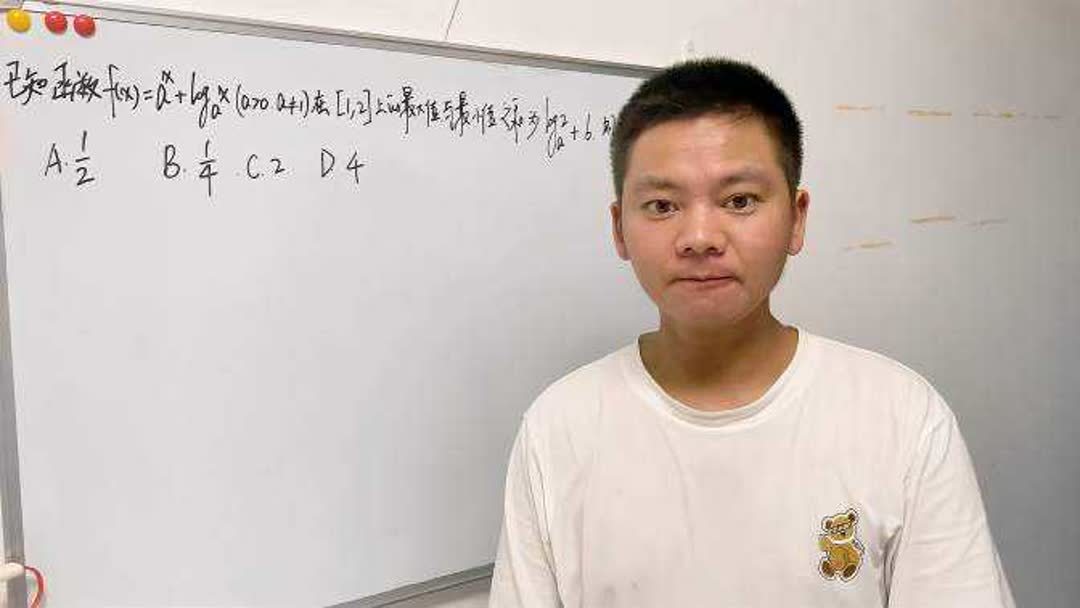 已知函数f(x)=a^x+log_a x(a>0 a≠1)在[1,2]上的最大值与最小值之和为log_a 2+6 则
A.1/2 B.1/4 .C.2 D 4